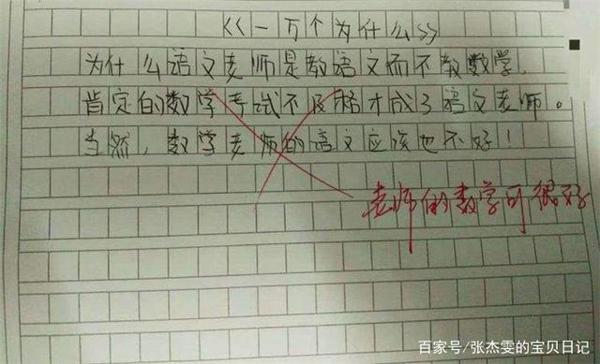 《一万个为什么》
为什么语文老师是教语文而不教数学,
肯定的数学考试不及格才成了语文老师。
当然,数学老师的语文应该也不好!
老师的数学可很好
百家号/张杰雯的宝贝日记